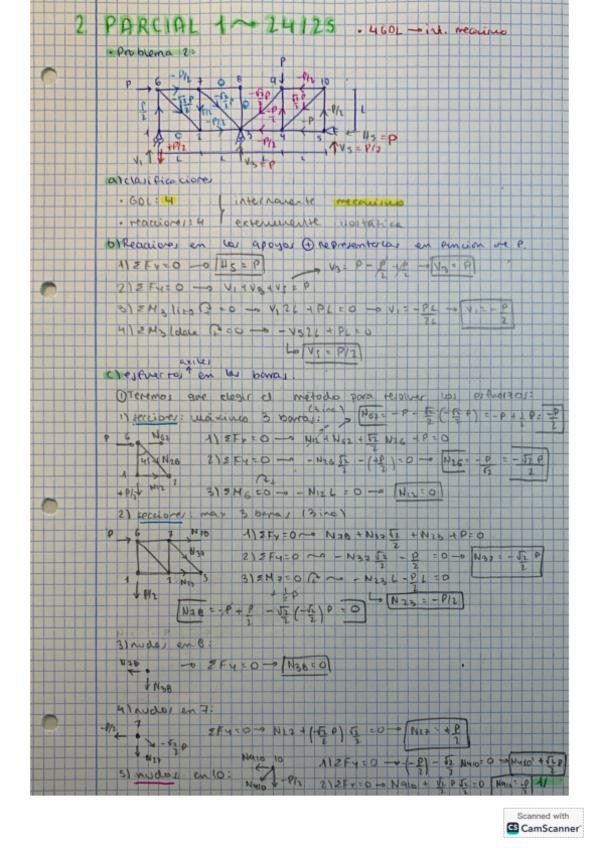 2 PARCIAL 1 ~ 24/25
• 4GDL → int. mecanismo
• Problema 2:
P
P 6 -P/2 7 0 8 9 -P/2 10
1 2 3 4 5
H5 = P
V1 +P/2 L L V3 = P L L V5 = P/2
a) clasificaciones
• GDL: 4 internamente mecanismo
• reacciones: 4 externamente isostática
b) Reacciones en los apoyos ⊕ representarlas en función de P.
1) ΣFx=0 → H5 = P
V3 = P - P/2 + P/2 → V3 = P
2) ΣFy=0 → V1+V3+V5 = P
3) ΣM3/izq = 0 → V1 2L + PL = 0 → V1 = -PL/2L → V1 = -P/2
4) ΣM3/dcha = 0 → -V5 2L + PL = 0
V5 = P/2
c) esfuerzos axiles en las barras.
① Tenemos que elegir el método para resolver los esfuerzos:
1) secciones: máximo 3 barras (3 inc)
N67 = -P - √2/2 (-√2/2 P) = -P + 1/2 P = -P/2
P 6 N67
1) ΣFx=0 → N12 + N67 + √2/2 N26 + P = 0
2) ΣFy=0 → -N26 √2/2 - (+P/2) = 0 → N26 = -P/√2 = -√2 P/2
3) ΣM6 = 0 → -N12 L = 0 → N12 = 0
2) secciones: max 3 barras (3 inc)
P 6 7 N78
1) ΣFx=0 → N78 + N37 √2/2 + N23 + P = 0
2) ΣFy=0 ~ -N37 √2/2 - P/2 = 0 → N37 = -√2/2 P
3) ΣM7=0 ~ -N23 L - P/2 L = 0
N23 = -P/2
N78 = -P + P/2 - √2/2 (-√2/2) P = 0
3) nudos en 8:
N78 → ΣFy=0 → N38 = 0
N38
4) nudos en 7:
-P/2 7 -√2/2 P
N27
ΣFy=0 → N27 + (-√2/2 P) √2/2 = 0 → N27 = +P/2
5) nudos en 10: N910 10
N410 -P/2
1) ΣFy=0
2) ΣFx=0
Scanned with
CS CamScanner